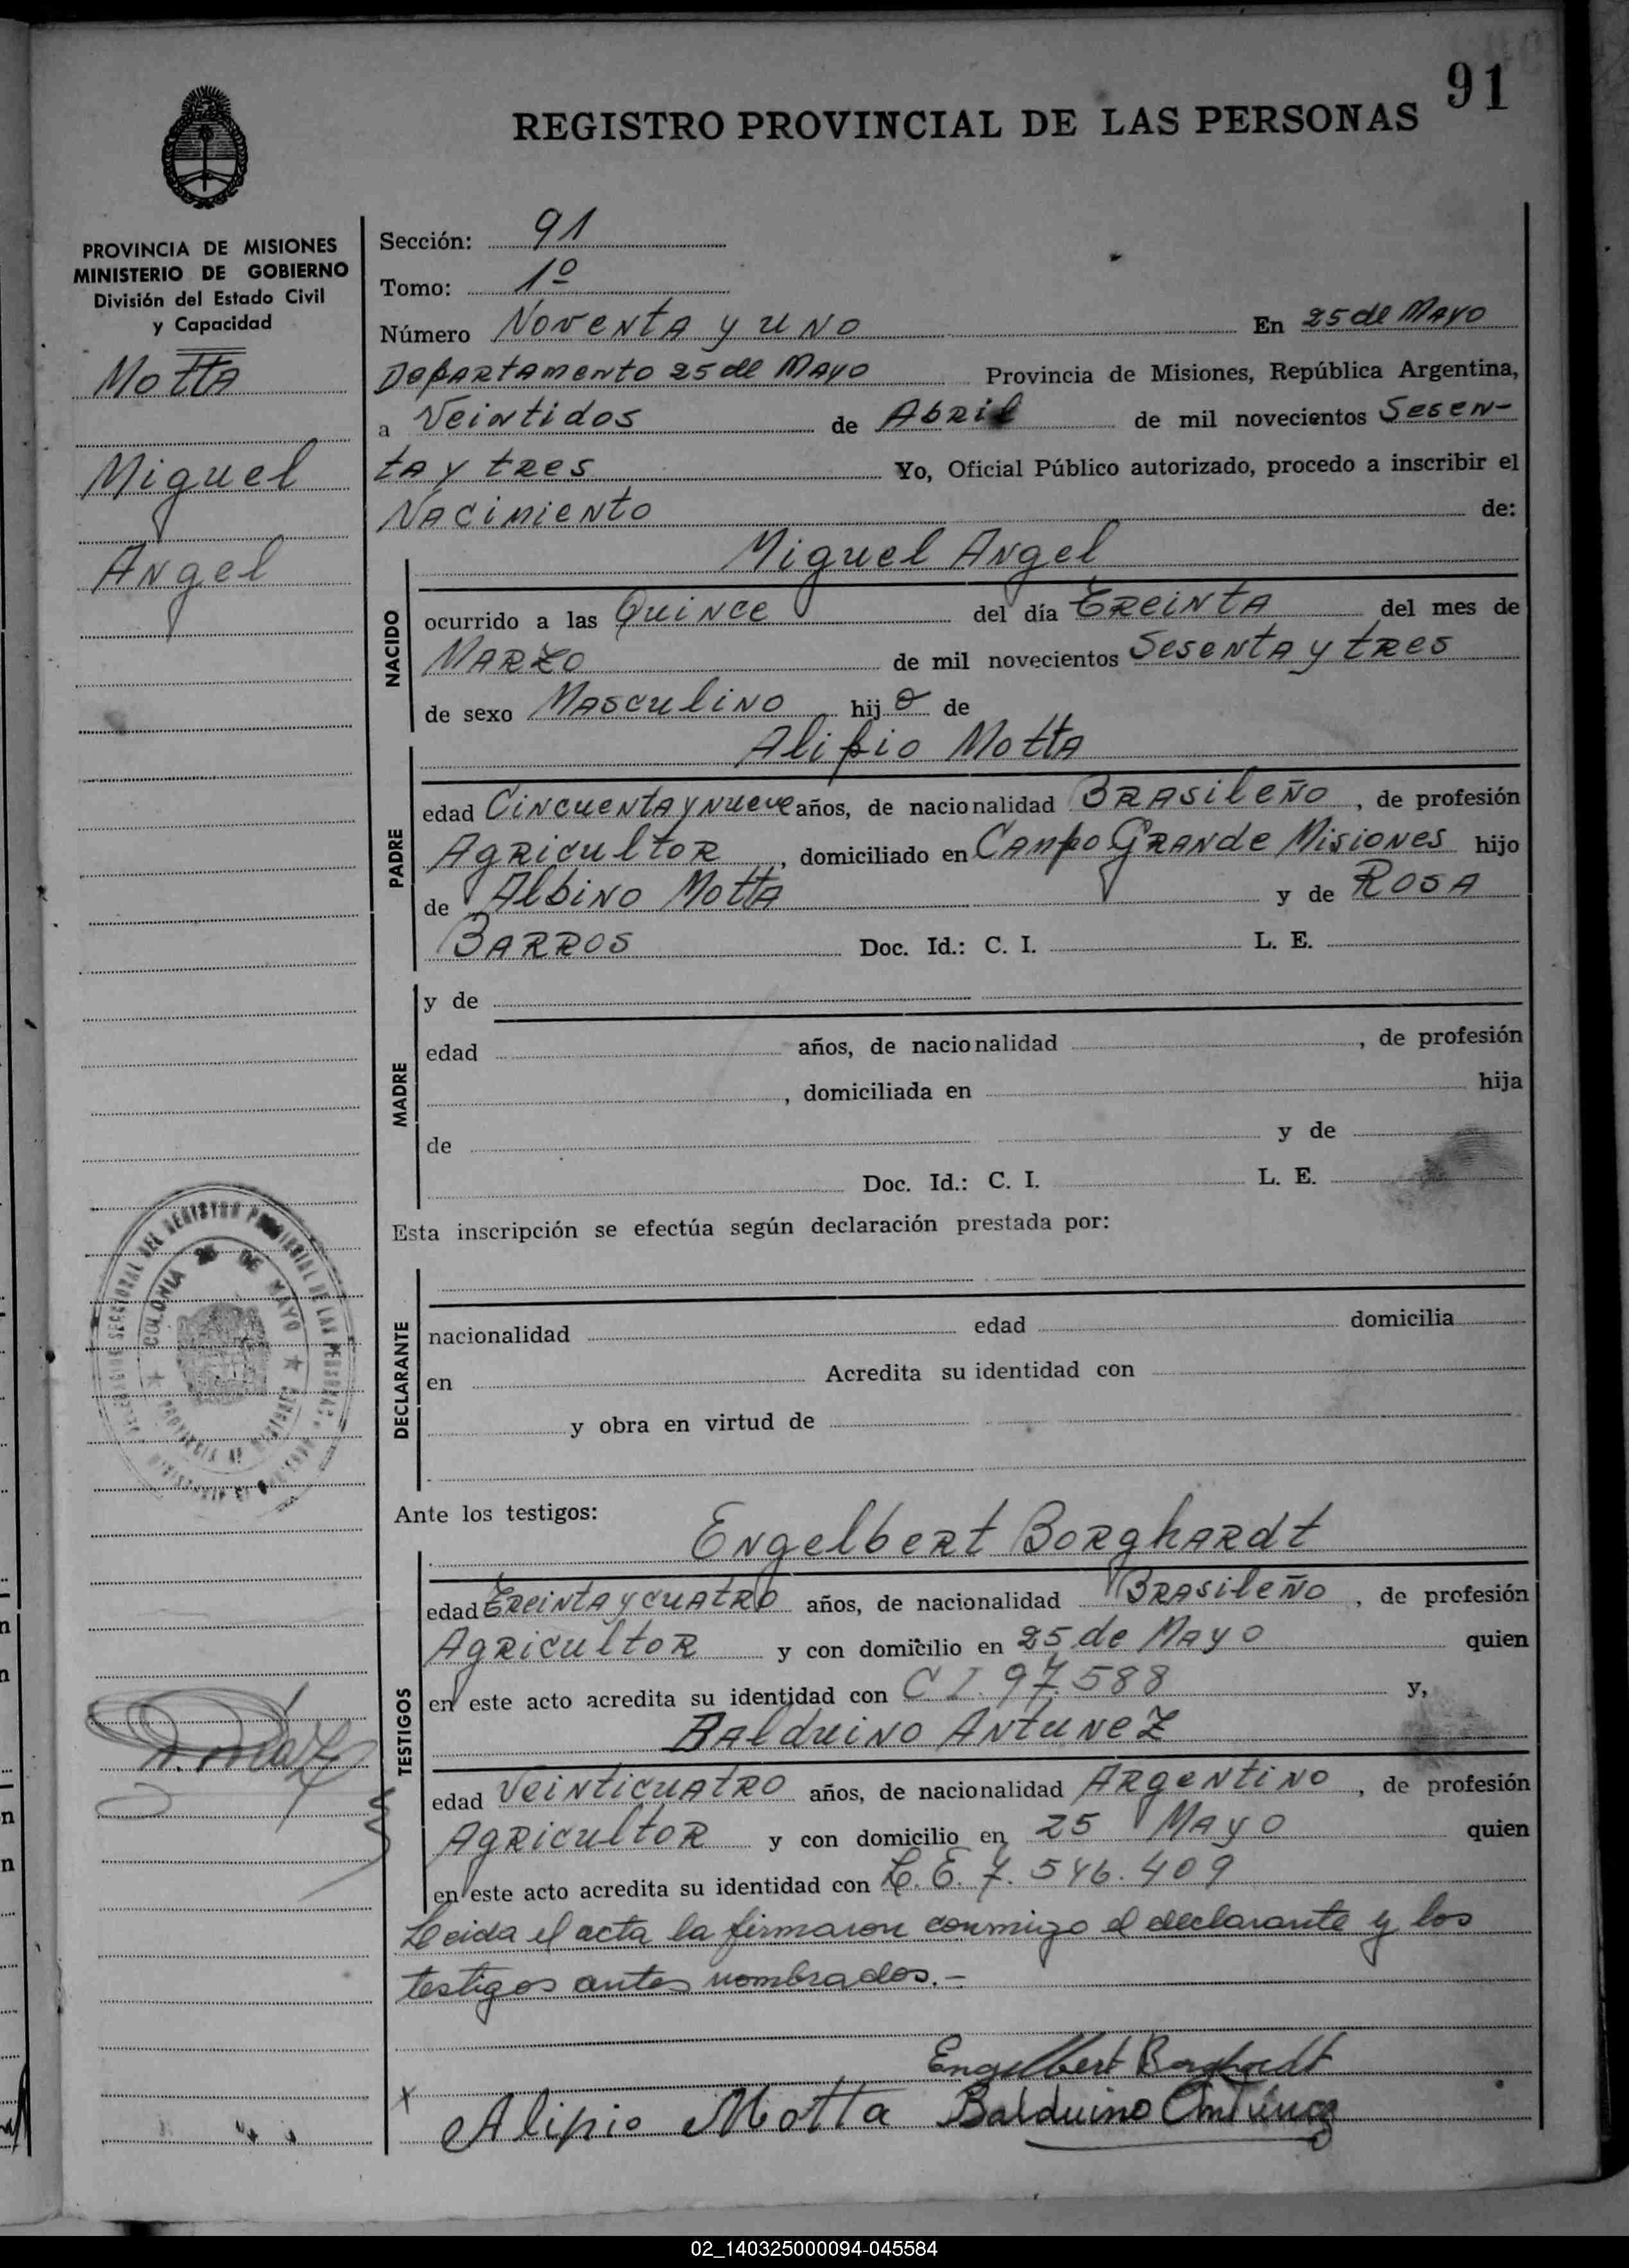 91
REGISTRO PROVINCIAL DE LAS PERSONAS
PROVINCIA DE MISIONES
MINISTERIO DE GOBIERNO
División del Estado Civil
y Capacidad
Motta
Miguel
Angel
Sección: 91
Tomo: 1º
Número Noventa y uno En 25 de Mayo
Departamento 25 de Mayo Provincia de Misiones, República Argentina,
a Veintidos de Abril de mil novecientos Sesen-
ta y tres Yo, Oficial Público autorizado, procedo a inscribir el
Nacimiento de:
NACIDO
Miguel Angel
ocurrido a las Quince del día Treinta del mes de
Marzo de mil novecientos Sesenta y tres
de sexo Masculino hijo de
PADRE
Alipio Motta
edad Cincuenta y nueve años, de nacionalidad Brasileño, de profesión
Agricultor, domiciliado en Campo Grande Misiones hijo
de Albino Motta y de Rosa
Barros Doc. Id.: C. I. L. E.
MADRE
y de
edad años, de nacionalidad , de profesión
, domiciliada en hija
de y de
Doc. Id.: C. I. L. E.
Esta inscripción se efectúa según declaración prestada por:
DECLARANTE
nacionalidad edad domicilia
en Acredita su identidad con
y obra en virtud de
COLONIA 25 DE MAYO
Ante los testigos:
TESTIGOS
Engelbert Borghardt
edad Treinta y cuatro años, de nacionalidad Brasileño, de profesión
Agricultor y con domicilio en 25 de Mayo quien
en este acto acredita su identidad con C I. 97.588 y,
Balduino Antunez
edad Veinticuatro años, de nacionalidad Argentino, de profesión
Agricultor y con domicilio en 25 Mayo quien
en este acto acredita su identidad con L. E. 7. 546. 409
Leida el acta la firmaron conmigo el declarante y los
testigos antes nombrados.-
Engelbert Borghardt
x Alipio Motta Balduino Antunez
02_140325000094-045584